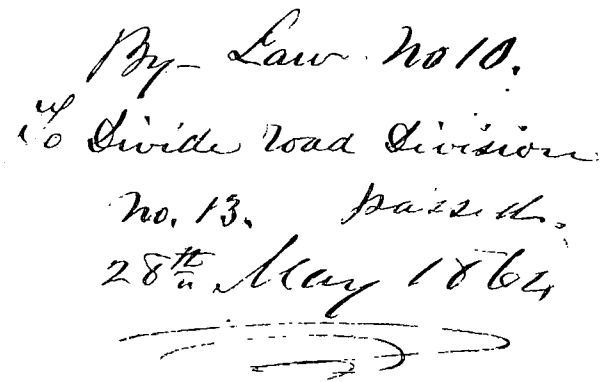 By-Law No 10.
To Divide road Division
no. 13. passed.
28th May 1864